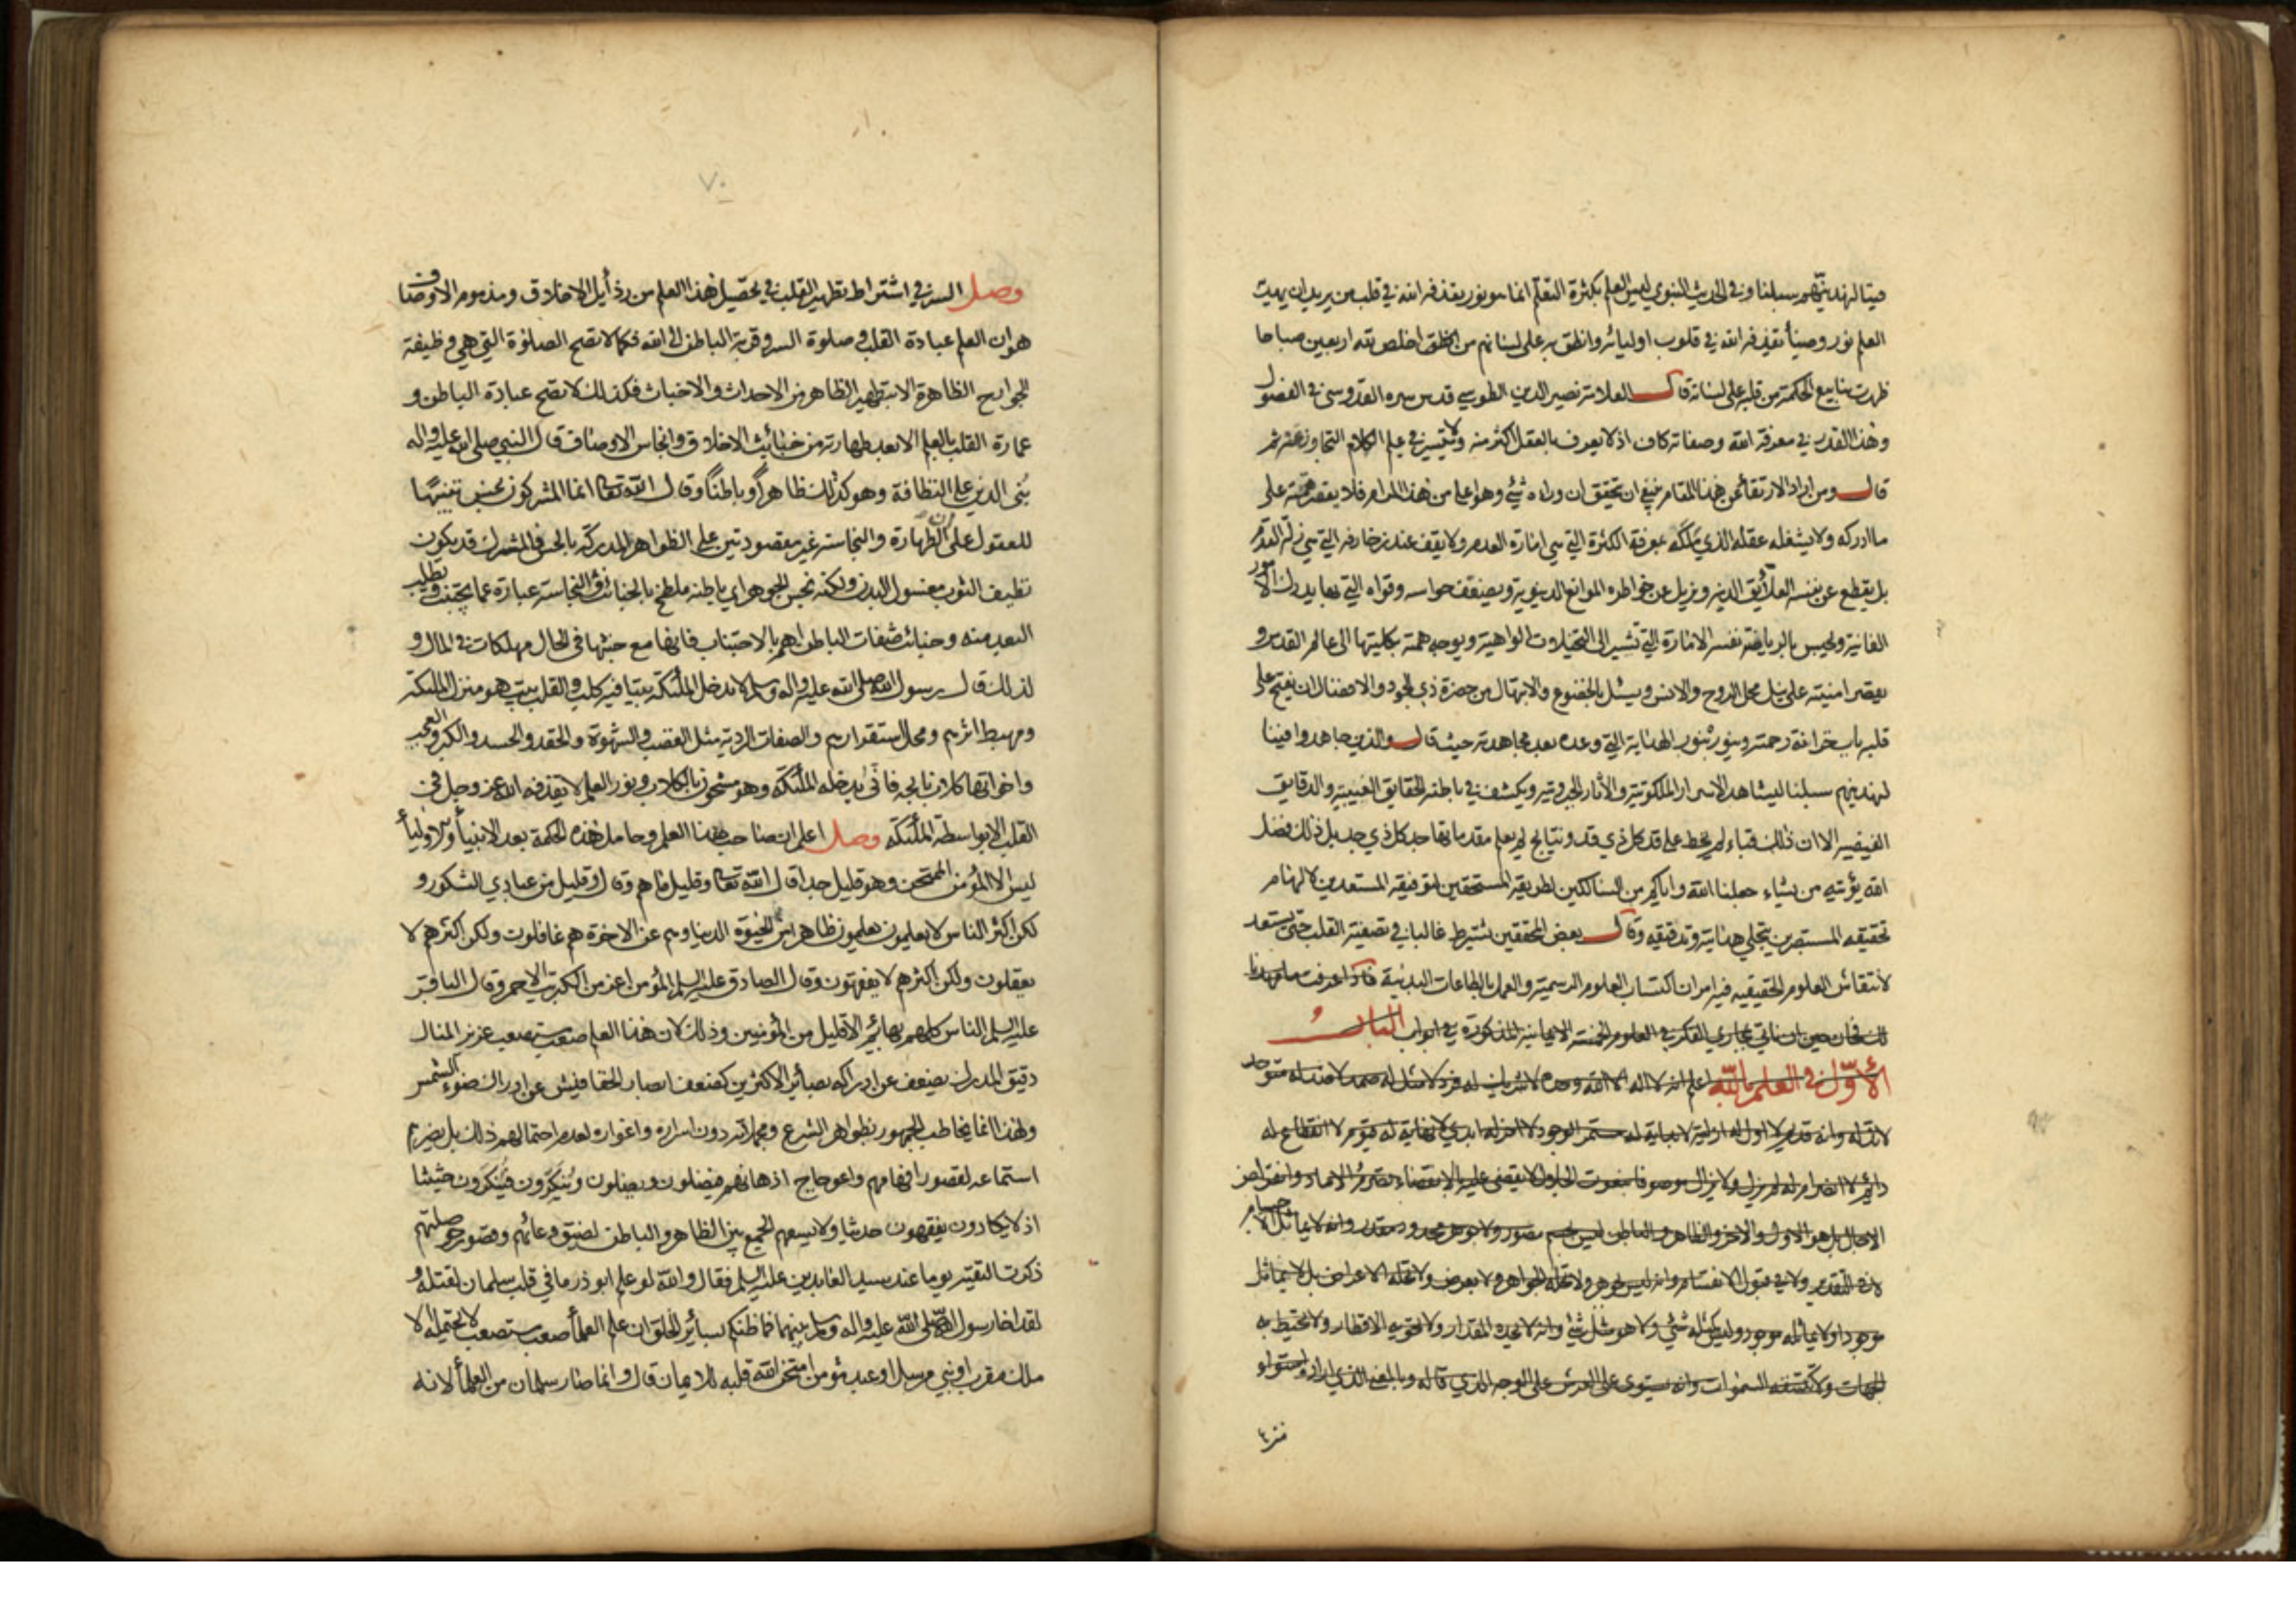 فينا لنهدينهم سبلنا وفي الحديث النبوي ليس العلم بكثرة التعلم انما هو نور يقذفه الله في قلب من يريد ان يهديه
العلم نور وضياء يقذفه الله في قلوب اوليائه وانطق به على لسانهم من اخلص لله اربعين صباحا
ظهرت ينابيع الحكمة من قلبه على لسانه قال العلامة نصير الدين الطوسي قدس سره القدوسي في الفصول
وهذا القدر في معرفة الله وصفاته كاف اذ لا يعرف بالعقل اكثر منه ولا يتيسر في علم الكلام التجاوز عنه ثم
قال ومن اراد الارتقاء عن هذا المقام ينبغي ان يتحقق ان وراءه شيء وهو اعلى من هذا المرام فلا يقصر همته على
ما ادركه ولا يشغله عقله الذي ملكه بمعرفة الكثرة التي هي امارة العدم ولا يقف عند زخارفه التي هي زلة القدم
بل يقطع عن نفسه العلائق الدنية ويزيل عن خواطره الموانع الدنيوية ويضعف حواسه وقواه التي بها يدرك الامور
الفانية ويحبس بالرياضة نفسه الامارة التي تشير الى التخيلات الواهية ويوجه همته بكليتها الى عالم القدس و
يقصر امنيته على نيل محل الروح والانس ويسئل بالخضوع والابتهال من حضرة ذي الجود والافضال ان يفتح على
قلبه باب خزانة رحمته وينوره بنور الهداية التي وعده بعد مجاهدته حيث قال والذين جاهدوا فينا
لنهدينهم سبلنا ليشاهد الاسرار الملكوتية والآثار الجبروتية ويكشف في باطنه الحقايق الغيبية والدقايق
الفيضية الا ان ذلك قباء لم يخط على قد كل ذي قد ونتايج لم يعلم مقدماتها جد كل ذي جد بل ذلك فضل
الله يؤتيه من يشاء جعلنا الله واياكم من السالكين لطريقه المستحقين لتوفيقه المستعدين لالهام
تحقيقه المستبصرين بتجلي هدايته وتدقيقه وقال بعض المحققين يشترط غالبا في تصفية القلب حتى يستعد
لانتقاش العلوم الحقيقية فيه امران اكتساب العلوم الرسمية والعمل بالطاعات البدنية فاذا عرفت ما مهدنا
لك فحان حين ان ناتي بمجاري الفكر في العلوم الخمسة الايمانية المذكورة في ابواب الباب
الأوّل في العلم بالله اعلم انه لا اله الا الله وحده لا شريك له فرد لا مثل له صمد لا ضد له متوحد
لا ند له وانه قديم لا اول له ازلي لا بداية له مستمر الوجود لا اخر له ابدي لا نهاية له قيوم لا انقطاع له
دائم لا انصرام له لم يزل ولا يزال موصوفا بنعوت الجلال لا يقضى عليه بالانقضاء بتصرم الاماد وانقراض
الاجال بل هو الاول والاخر والظاهر والباطن ليس بجسم مصور ولا جوهر محدود مقدر وانه لا يماثل الاجسام
لا في التقدير ولا في قبول الانقسام وانه ليس بجوهر ولا تحله الجواهر ولا بعرض ولا تحله الاعراض بل لا يماثل
موجودا ولا يماثله موجود وليس كمثله شيء ولا هو مثل شيء وانه لا يحده المقدار ولا تحويه الاقطار ولا تحيط به
الجهات ولا تكتنفه السموات وانه مستوي على العرش على الوجه الذي قاله وبالمعنى الذي اراده استواء
وصل السر في اشتراط تطهير القلب في تحصيل هذا العلم من رذائل الاخلاق ومذموم الاوصاف
هو ان العلم عبادة القلب وصلوة السر وقربة الباطن الى الله فكما لا تصح الصلوة التي هي وظيفة
الجوارح الظاهرة الا بتطهير الظاهر من الاحداث والاخباث فكذلك لا تصح عبادة الباطن و
عمارة القلب بالعلم الا بعد طهارته من خبائث الاخلاق وانجاس الاوصاف قال النبي صلى الله عليه واله
بُني الدين على النظافة وهو كذلك ظاهراً وباطناً وقال الله تعالى انما المشركون نجس تنبيها
للعقول على ان الطهارة والنجاسة غير مقصودتين على الظواهر المدركة بالحس فالمشرك قد يكون
نظيف الثوب مغسول البدن ولكنه نجس الجوهر اي باطنه ملطخ بالخبائث والنجاسة عبارة عما يجتنب ويطلب
البعد منه وخبائث صفات الباطن اهم بالاجتناب فانها مع خبثها في الحال مهلكات في المال و
لذلك قال رسول الله صلى الله عليه واله وسلم لا تدخل الملئكة بيتا فيه كلب والقلب بيت هو منزل الملئكة
ومهبط اثرهم ومحل استقرارهم والصفات الردية مثل الغضب والشهوة والحقد والحسد والكبر والعجب
واخواتها كلاب نابحه فانّى يدخله الملئكة وهو مشحون بالكلاب ونور العلم لا يقذفه الله عز وجل في
القلب الا بواسطة الملئكة وصل اعلم ان صاحب هذا العلم وحامل هذه الحكمة بعد الانبياء والاولياء
ليس الا المؤمن الممتحن وهو قليل جدا قال الله تعالى وقليل ما هم وقال وقليل من عبادي الشكور و
لكن اكثر الناس لا يعلمون يعلمون ظاهرا من الحيوة الدنيا وهم عن الاخرة هم غافلون ولكن اكثرهم لا
يعقلون ولكن اكثرهم لا يفقهون وقال الصادق عليه السلم المؤمن اعز من الكبريت الاحمر وقال الباقر
عليه السلم الناس كلهم بهائم الا قليل من المؤمنين وذلك لان هذا العلم صعب مستصعب عزيز المنال
دقيق المدرك يضعف عن ادراكه بصائر الاكثرين كضعف ابصار الخفافيش عن ادراك ضوء الشمس
ولهذا انما يخاطب الجمهور بظواهر الشرع ومجملاته دون اسراره واغواره لعدم احتمالهم ذلك بل يضرهم
استماعه لقصور افهامهم واعوجاج اذهانهم فيضلون ويضلون ويُنكِرون فيُنكَرون حثيثا
اذ لا يكادون يفقهون حديثا ولا يسعهم الجمع بين الظاهر والباطن لضيق وعائهم وقصور حوصلتهم
ذكرت التقية يوما عند سيد العابدين عليه السلم فقال والله لو علم ابو ذر ما في قلب سلمان لقتله و
لقد اخا رسول الله صلى الله عليه واله وسلم بينهما فما ظنكم بسائر الخلق ان علم العلماء صعب مستصعب لا يحتمله الا
ملك مقرب او نبي مرسل او عبد مؤمن امتحن الله قلبه للايمان قال وانما صار سلمان من العلماء لانه